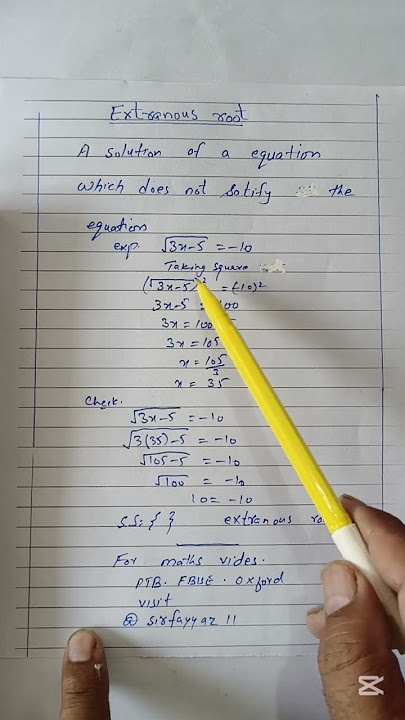 Extranous root
A solution of a equation
which does not sotify the
equation
exp. √3x-5 = -10
Taking square
(√3x-5)² = (-10)²
3x-5 = 100
3x = 100
3x = 105
x = 105/3
x = 35
Check.
√3x-5 = -10
√3(35)-5 = -10
√105-5 = -10
√100 = -10
10 = -10
S.S: { } extranous
For maths vides.
PTB. FBISE. Oxford
visit
@ sirfayyaz 11